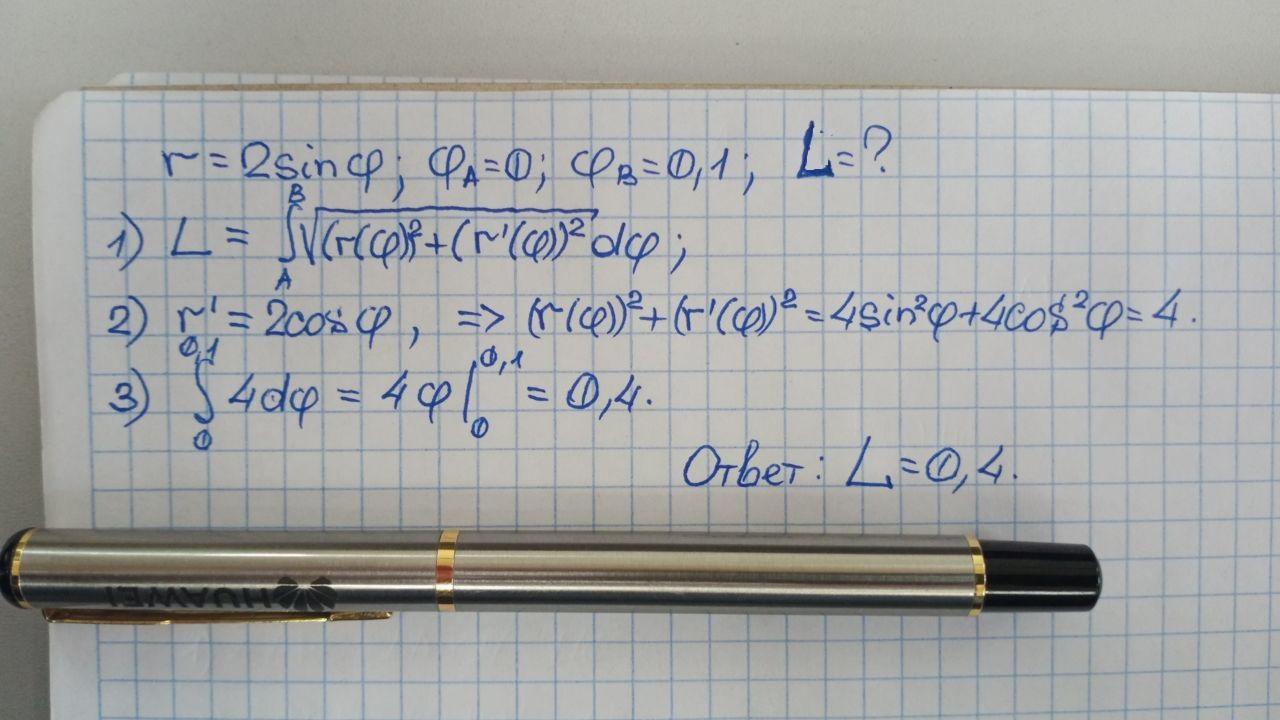 r = 2sinφ; φ_A=0; φ_B=0,1; L=?
1) L = ∫_A^B √((r(φ))²+(r'(φ))²) dφ;
2) r' = 2cosφ, => (r(φ))²+(r'(φ))² = 4sin²φ+4cos²φ = 4.
3) ∫_0^0,1 4dφ = 4φ|_0^0,1 = 0,4.
Ответ: L=0,4.
HUAWEI